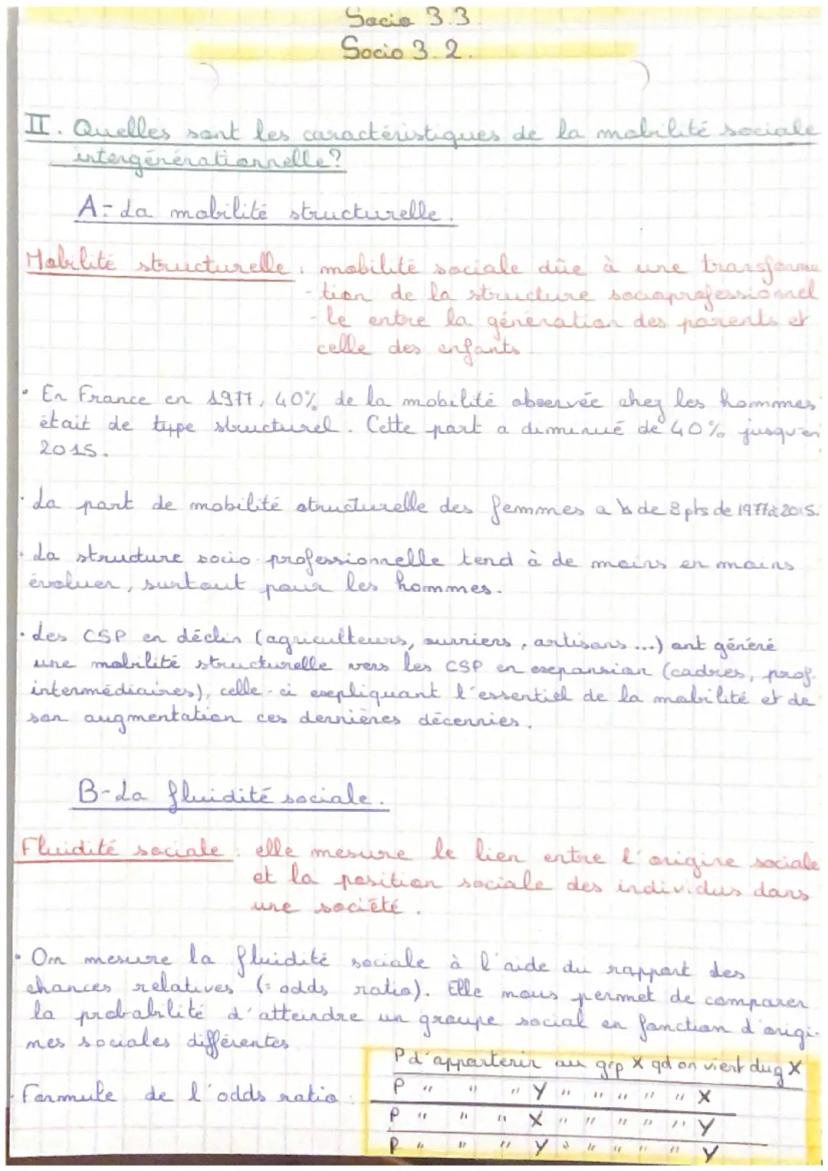 Socio 3.3
Socio 3.2.
II. Quelles sont les caractéristiques de la mobilité sociale
intergénérationnelle?
A- La mobilité structurelle.
Mobilité structurelle : mobilité sociale dûe à une transforma
-tion de la structure socioprofessionnel
-le entre la génération des parents et
celle des enfants
• En France en 1977, 40% de la mobilité observée chez les hommes
était de type structurel. Cette part a diminué de 40% jusqu'en
2015.
• La part de mobilité structurelle des femmes a ↘ de 8 pts de 1977 à 2015.
• La structure socio-professionnelle tend à de moins en moins
évoluer, surtout pour les hommes.
• Les CSP en déclin (agriculteurs, ouvriers, artisans ...) ont généré
une mobilité structurelle vers les CSP en expansion (cadres, prof.
intermédiaires), celle-ci expliquant l'essentiel de la mobilité et de
son augmentation ces dernières décennies.
B- La fluidité sociale.
Fluidité sociale : elle mesure le lien entre l'origine sociale
et la position sociale des individus dans
une société.
• On mesure la fluidité sociale à l'aide du rapport des
chances relatives (= odds ratio). Elle nous permet de comparer
la probabilité d'atteindre un groupe social en fonction d'origi-
nes sociales différentes
P d'appartenir au grp X qd on vient du g X
• Formule de l'odds ratio :
P " " " Y " " " " " X
P " " " X " " " " " Y
P " " " Y " " " " " Y